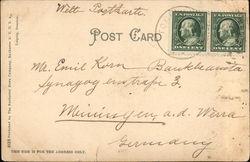 Welt Postkarte
POST CARD
U.S. POSTAGE U.S. POSTAGE
ONE CENT ONE CENT
Mr. Emil Korn Bankbeamter
Synagogenstrasse 3,
Meiningen a/d. Werra
Germany
THIS SIDE IS FOR THE ADDRESS ONLY.